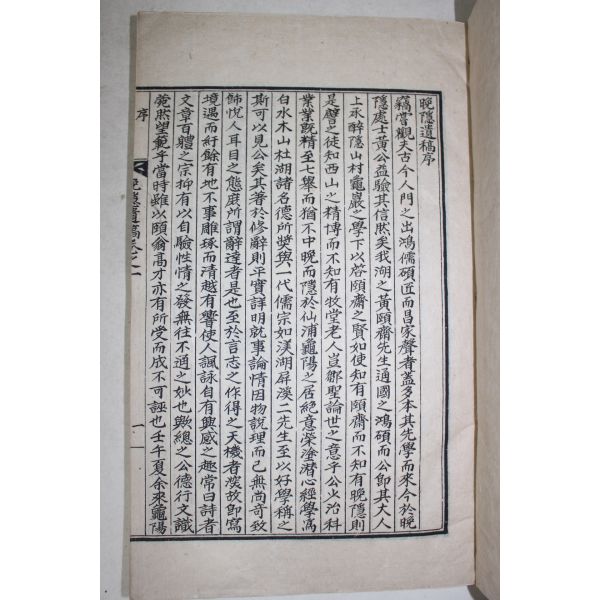 晚隱遺稿序
藕嘗觀夫古今人門之出鴻儒碩匠而昌家聲者蓋多本其先學而來今於晚
隱處士黃公益驗其信然矣我湖之黃頤齋先生通國之鴻碩而公卽其大人
上承醉隱山村龜巖之學下以啓頤齋之賢如使知有頤齋而不知有晚隱則
是譬之徒知西山之精博而不知有牧堂老人豈鄒聖論世之意乎公少治科
業業旣精至七擧而猶不中晚而隱於仙浦龜陽之居絶意榮塗潛心經學高
白水木山杜湖諸名德所奬與一代儒宗如渼湖屛溪二先生至以好學稱之
斯可以見公矣其著於修辭則平實詳明就事論情因物說理而已無尙奇致
餙悅人耳目之態庶所謂辭達者是也至於言志之作得之天機者深故卽寫
境遇而紆餘有地不事雕琢而淸越有響使人諷詠自有興感之趣常曰詩者
文章百體之宗抑有以自驗性情之發無往不適之妙也歟總之公德行文識
菀然望範乎當時雖以頤翁高才亦有所受而成不可誣也壬午夏余來龜陽
序
晚隱遺稿卷之一
一